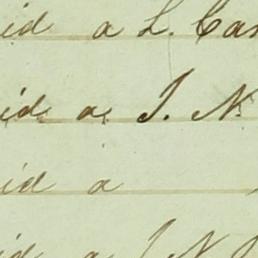 id a L. Can
id a J. N
id a
id a J. N